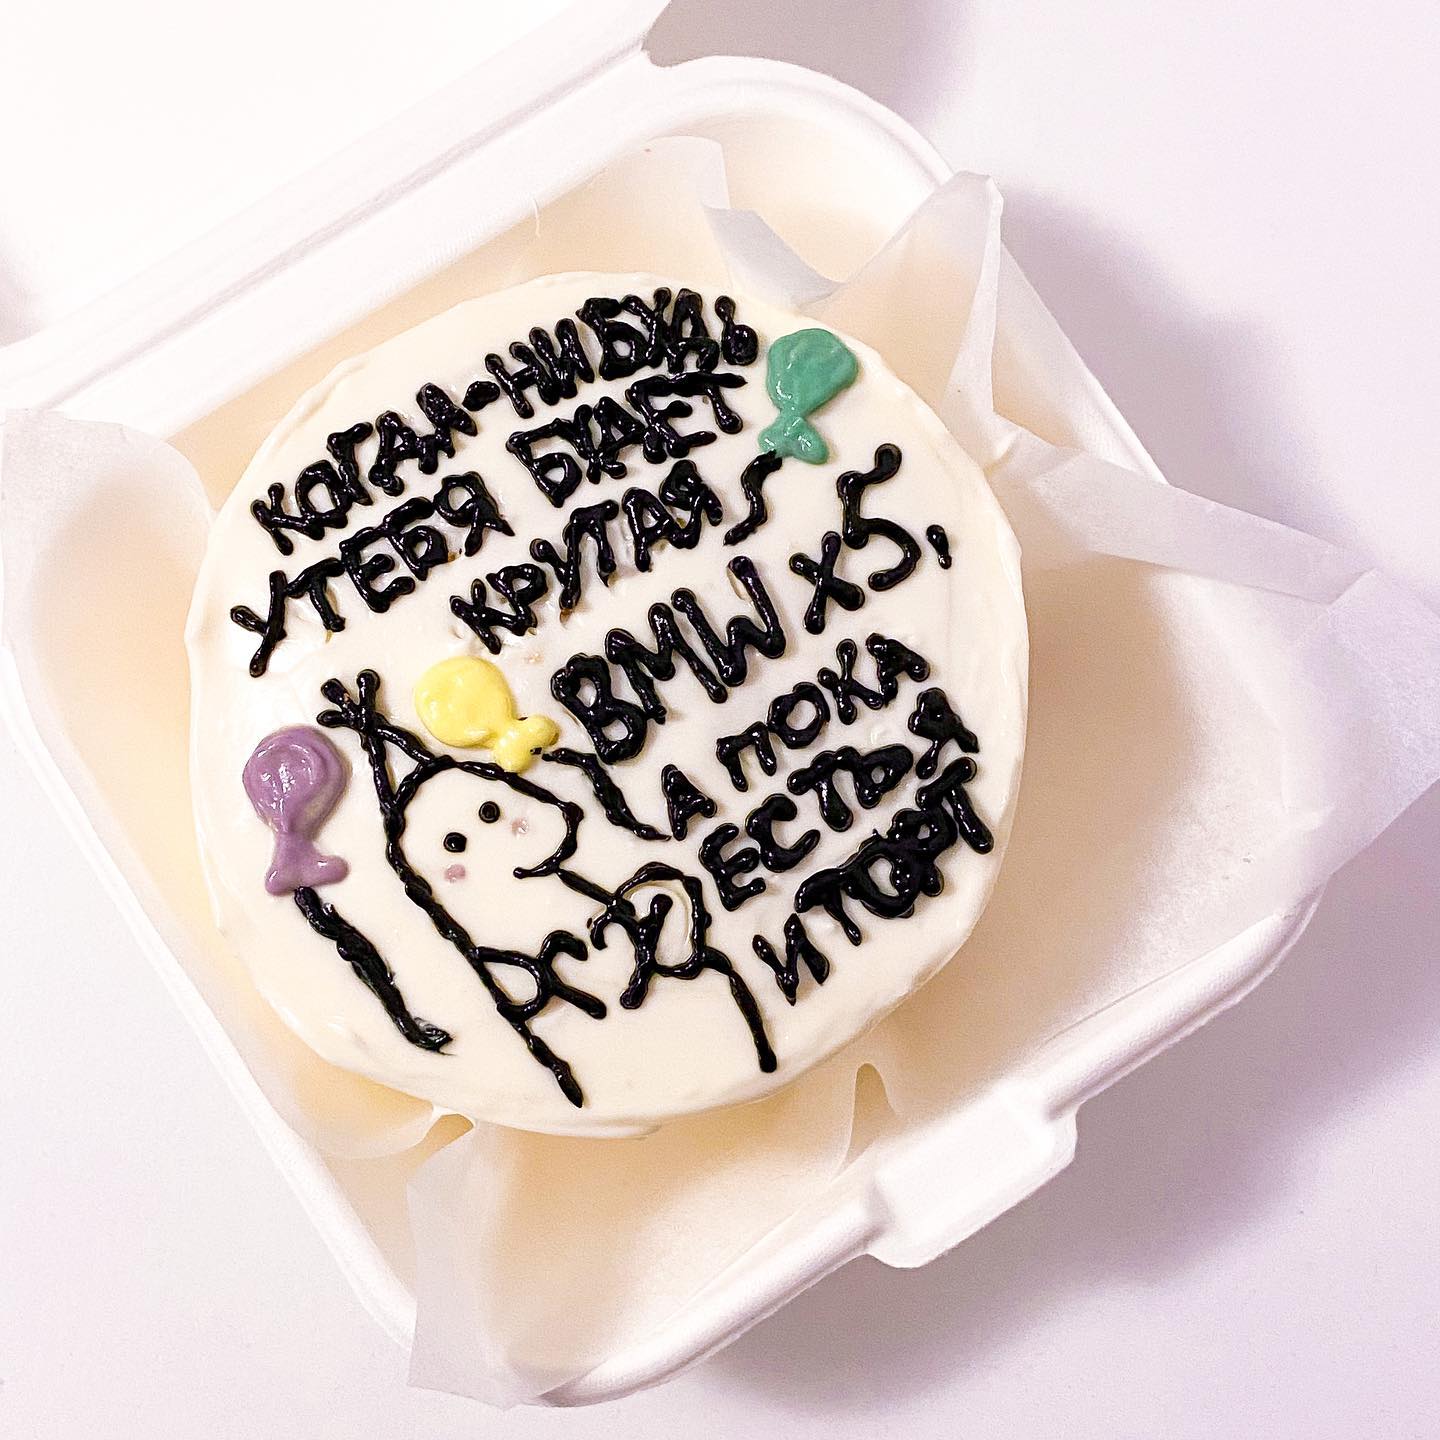 КОГДА-НИБУДЬ
У ТЕБЯ БУДЕТ
КРУТАЯ
BMW X5,
А ПОКА
ЕСТЬ Я
И ТОРТ